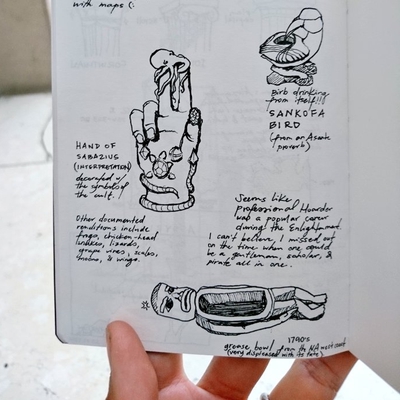 with maps (:
Birb drinking
from itself!!!
SANKOFA
BIRD
(from an Asante
proverb)
HAND OF
SABAZIUS
(INTERPRETATION)
decorated w/
the symbols of
the cult.
Other documented
renditions include
frogs, chicken-head
snakes, lizards,
grape vines, scales,
moons, & wings.
Seems like
professional Hoarder
was a popular career
during the Enlightenment.
I can't believe I missed out
on the time when one could
be a gentleman, scholar, &
pirate all in one.
1790's
grease bowl from the NA west coast
(very displeased with its fate)